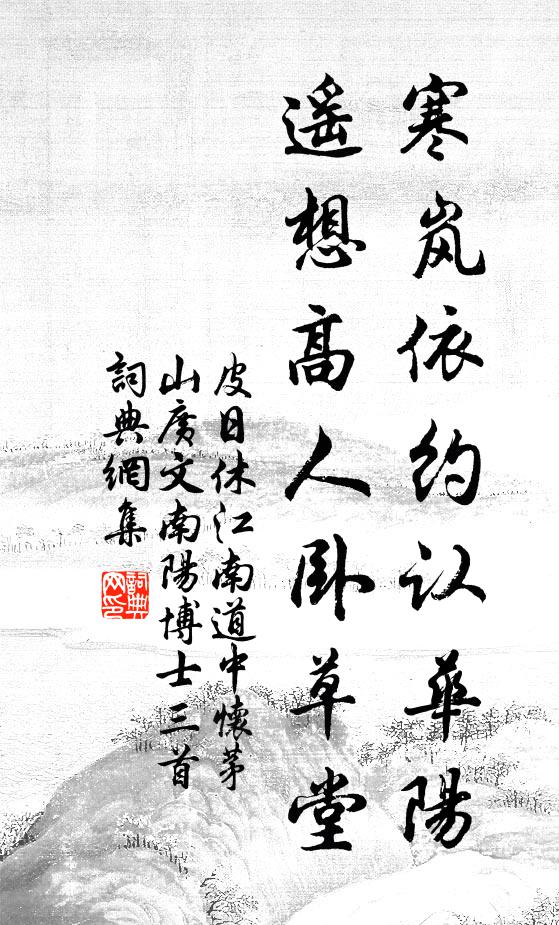 寒岚依约认華陽
遥想高人卧草堂
皮日休江南道中懷茅
山廣文南陽博士三首
詞典網集
詞典
网印